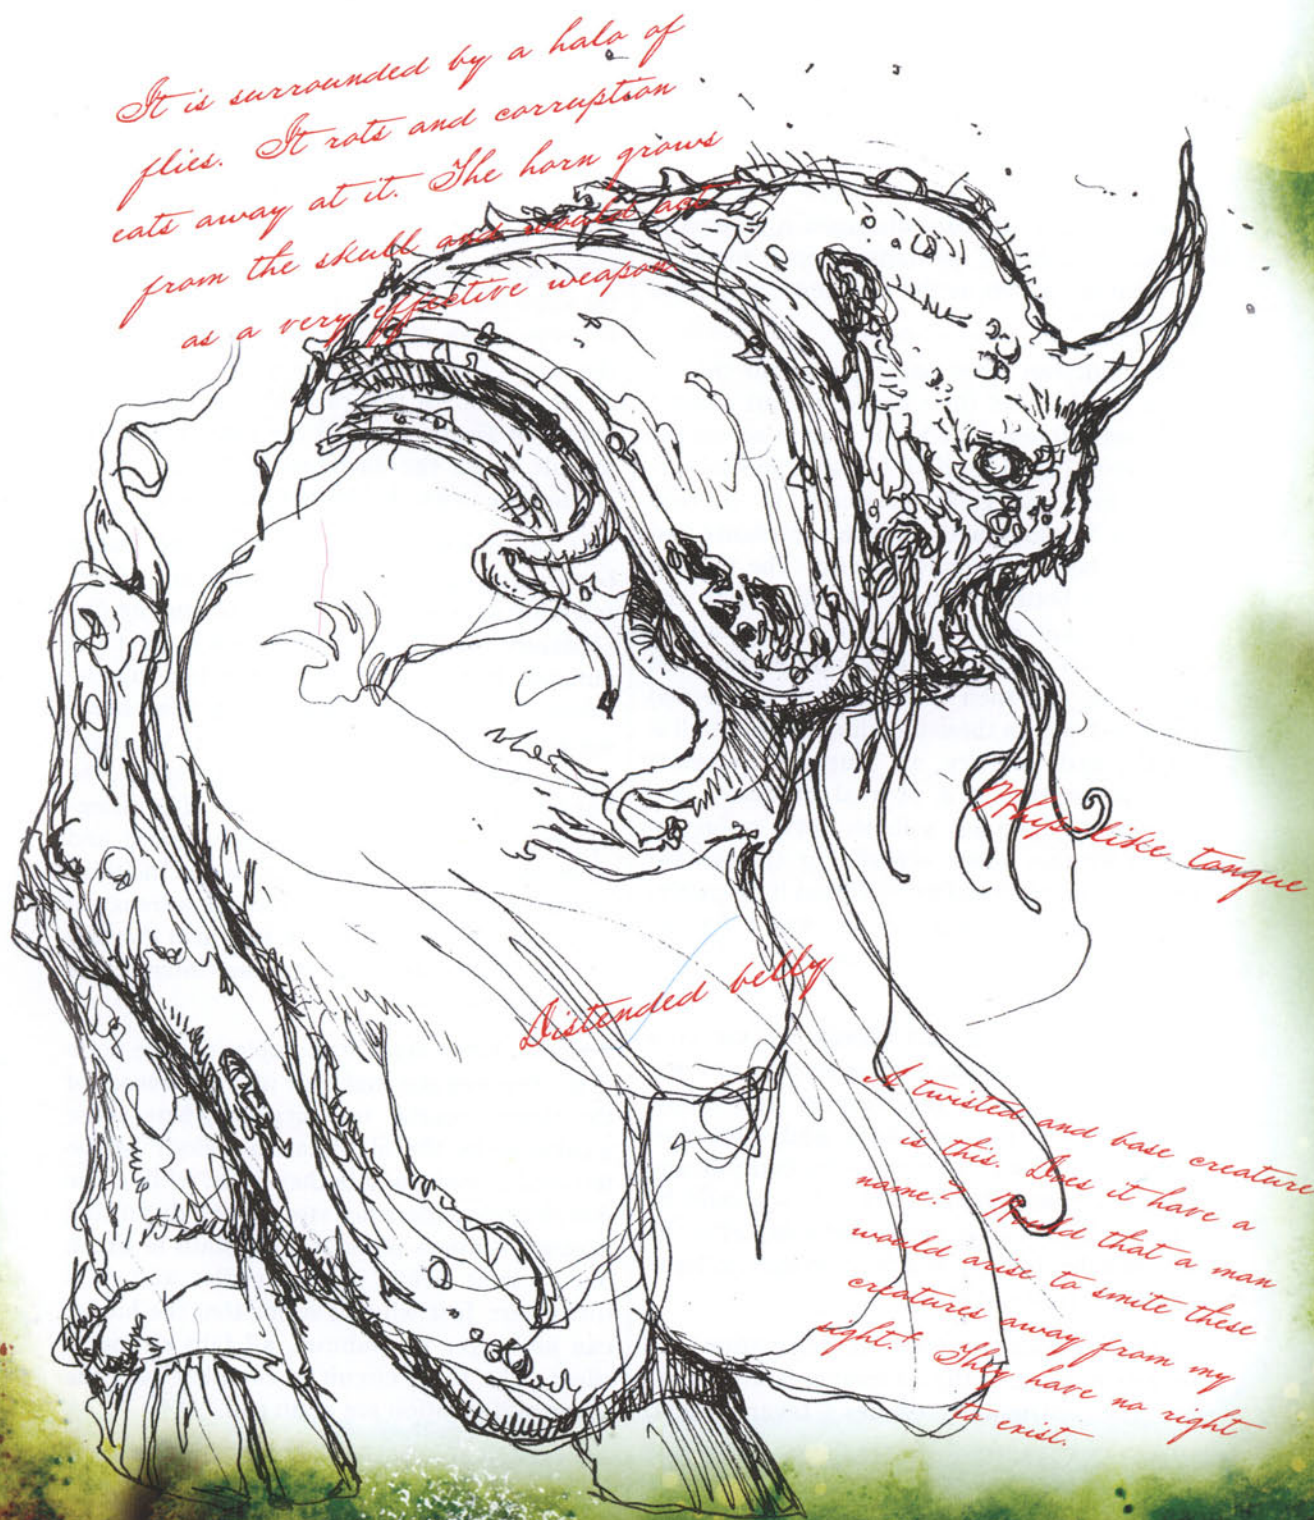 It is surrounded by a halo of
flies. It rots and corruption
eats away at it. The horn grows
from the skull and would act
as a very effective weapon
Whip-like tongue
Distended belly
A twisted and base creature
is this. Does it have a
name? Would that a man
would arise to smite these
creatures away from my
sight! They have no right
to exist.